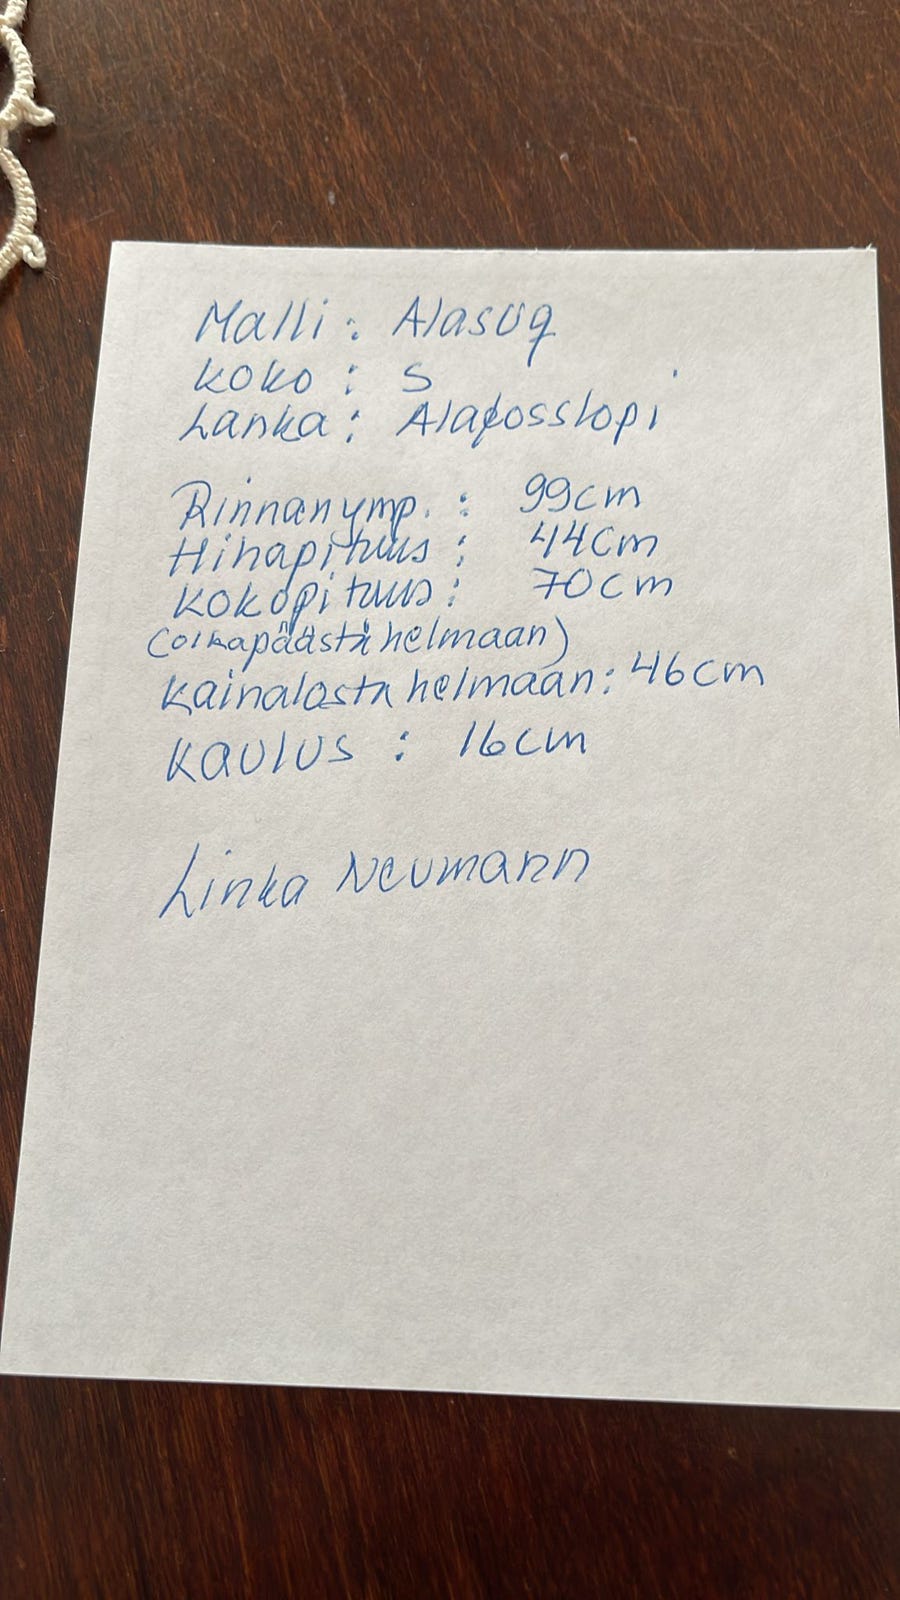 Malli: Alasuq
Koko: S
Lanka: Alafosslopi
Rinnanymp.: 99cm
Hihapituus: 44cm
Kokopituus: 70cm
(olkapäästä helmaan)
Kainalosta helmaan: 46cm
Kaulus: 16cm
Linka Neumann